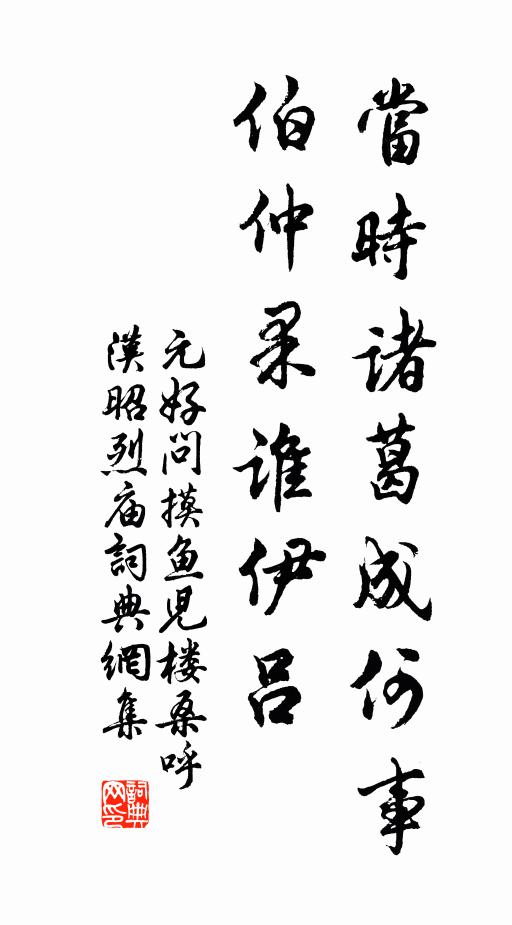 當時諸葛成何事
伯仲果誰伊呂
元好问摸鱼児楼桑呼
漢昭烈庙詞典網集
詞典网印